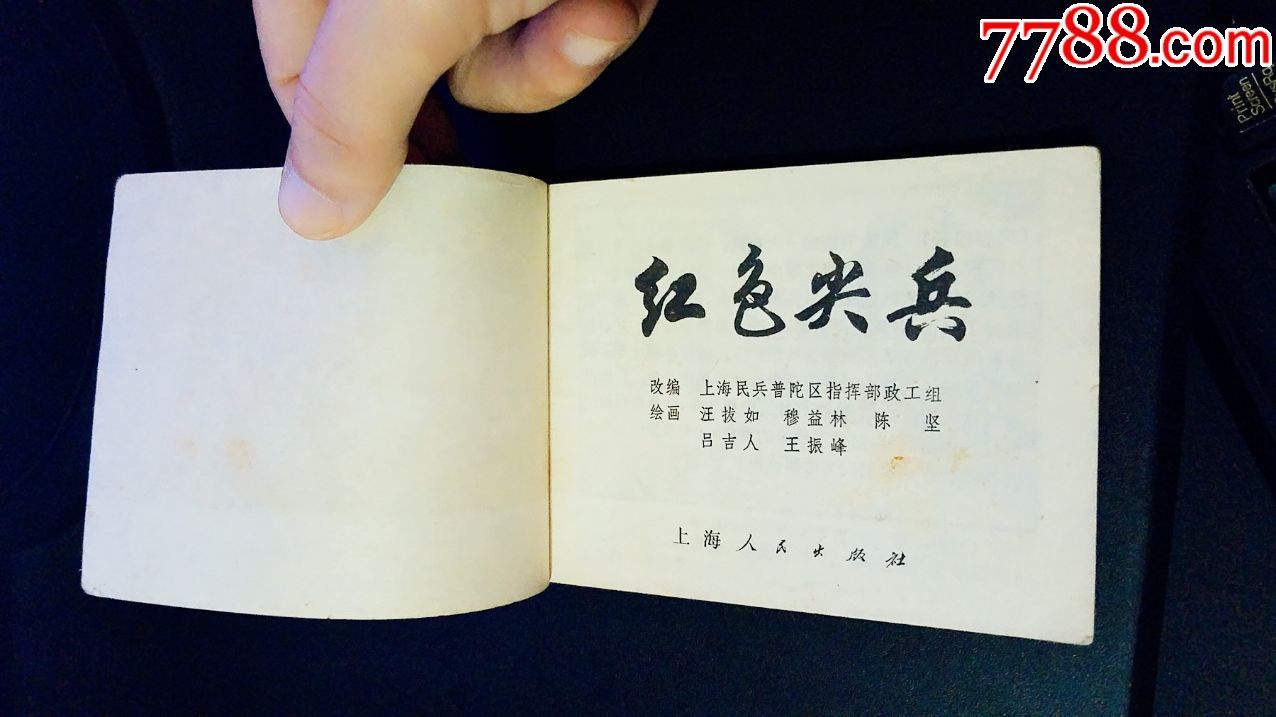 7788.com
Print
Screen
红色尖兵
改编 上海民兵普陀区指挥部政工组
绘画 汪拔如 穆益林 陈坚
吕吉人 王振峰
上海人民出版社